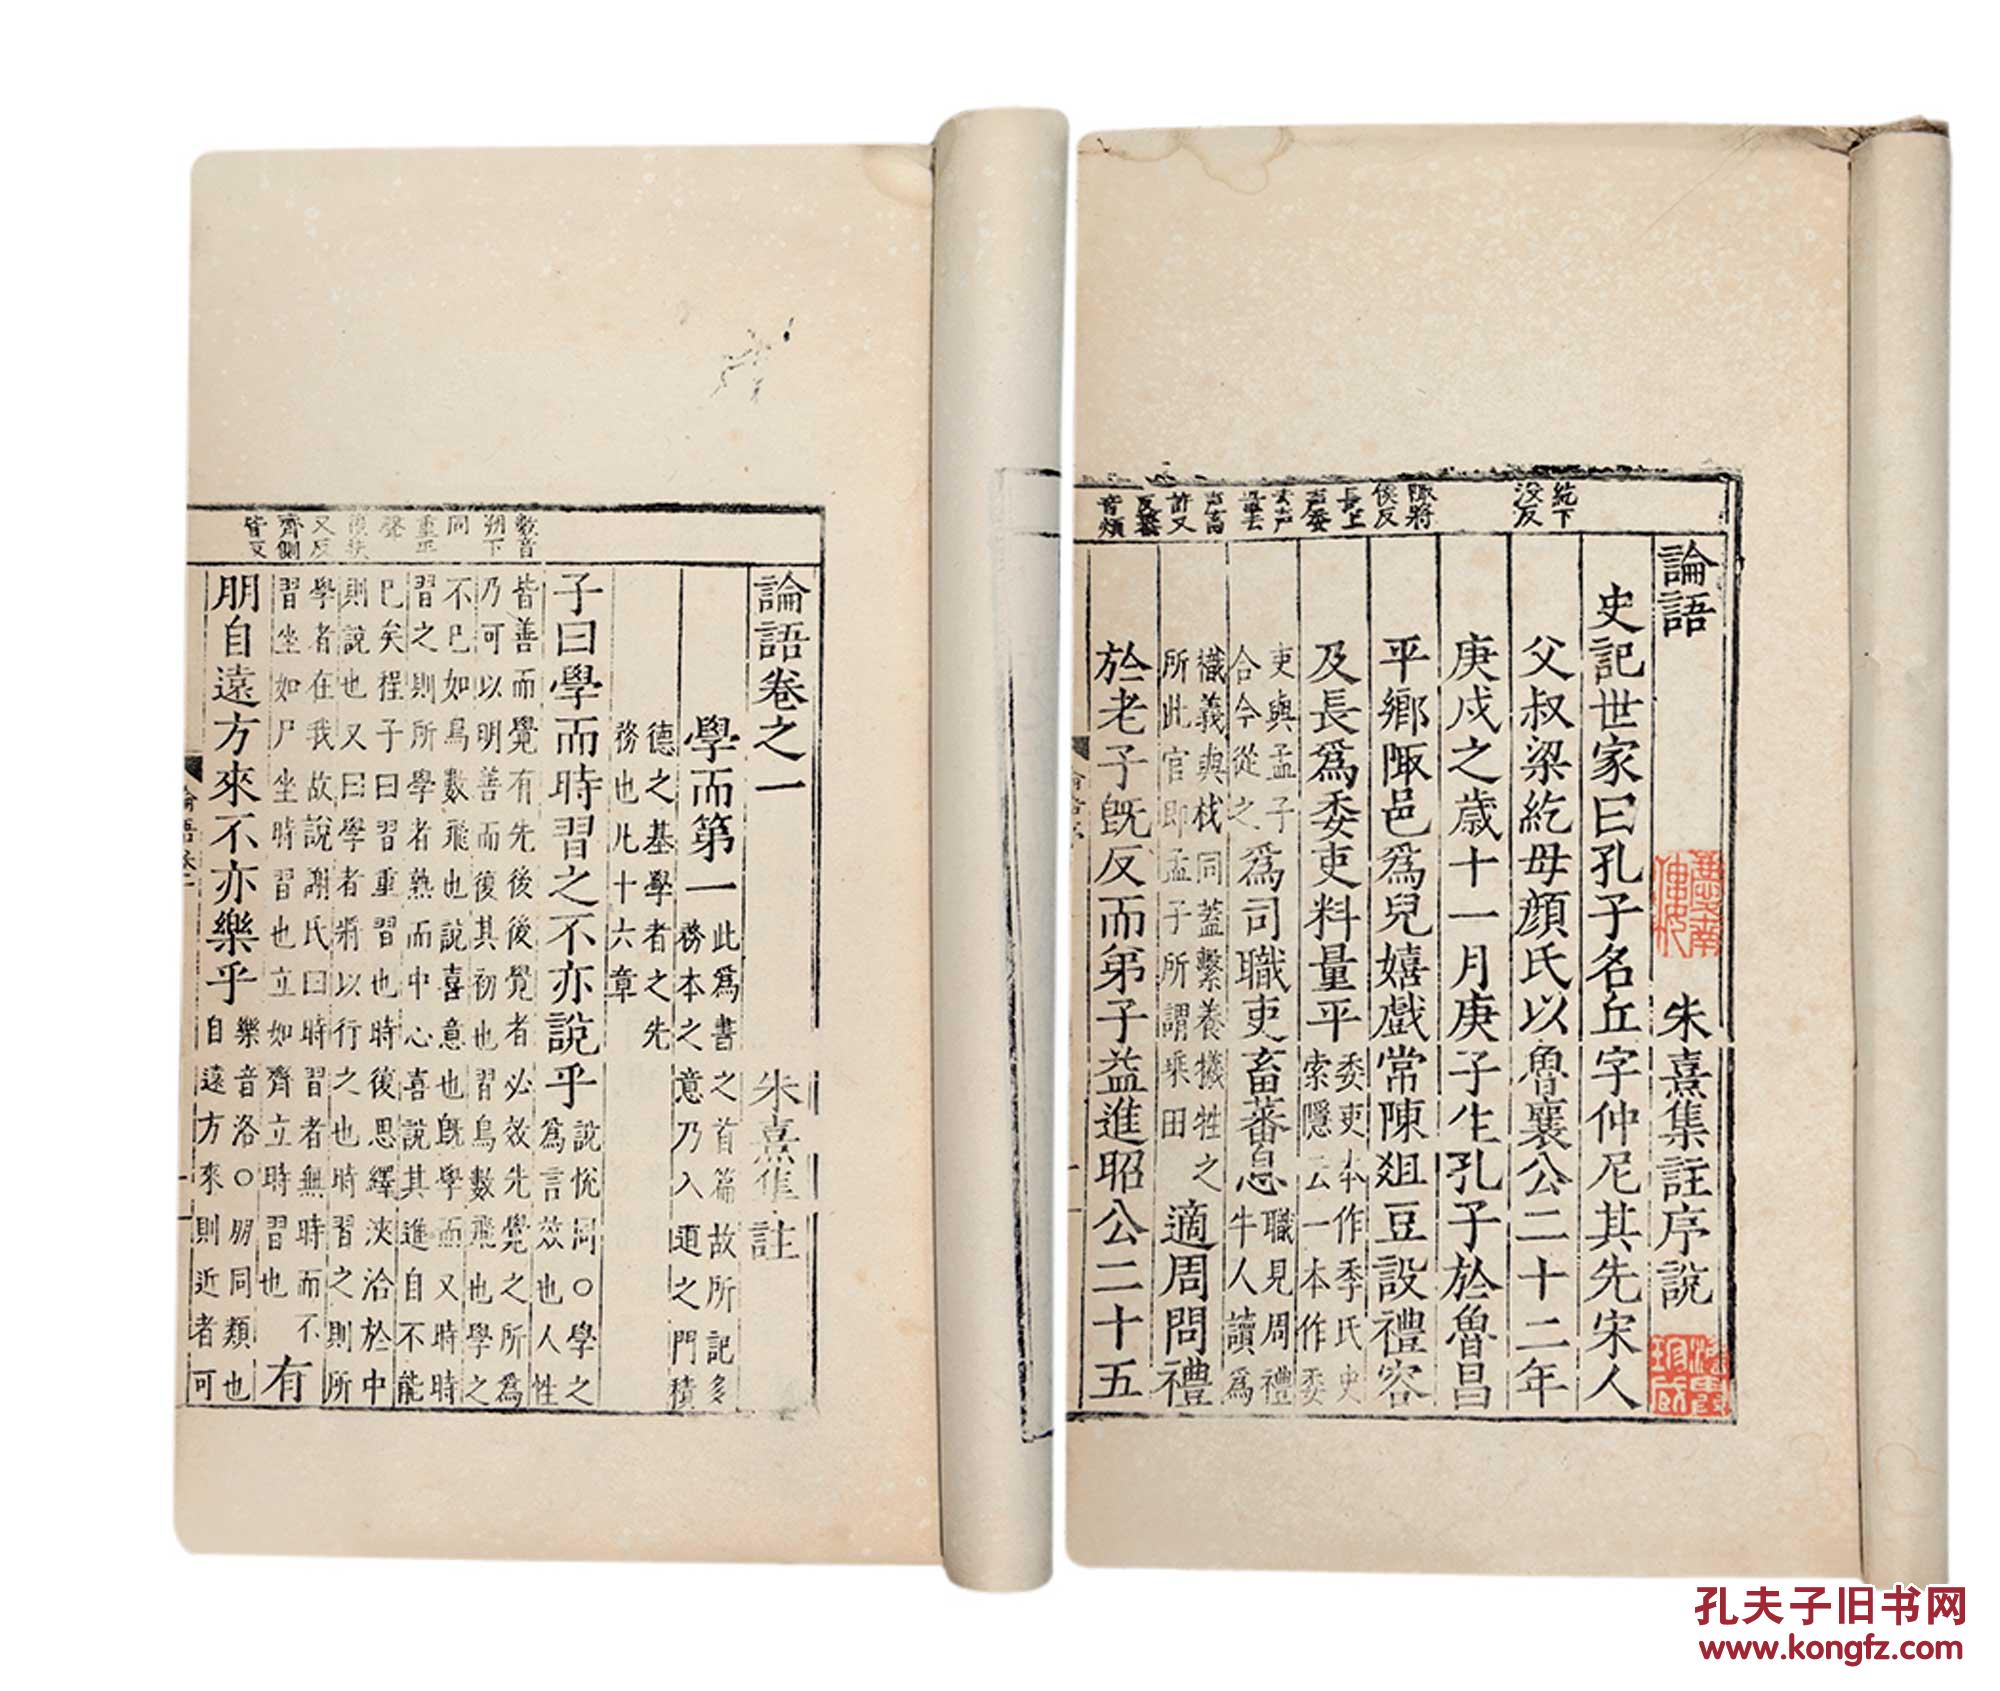 紇下
沒反
陬將
侯反
長上
声委
去声
音頻
論語 朱熹集註序說
史記世家曰孔子名丘字仲尼其先宋人
父叔梁紇母顏氏以魯襄公二十二年
庚戌之歲十一月庚子生孔子於魯昌
平鄉陬邑爲兒嬉戲常陳爼豆設禮容
及長爲委吏料量平
委吏本作季氏史
索隱云一本作委
吏與孟子
合今從之
爲司職吏畜蕃息
職見周禮
牛人讀爲
樴義與杙同蓋繫養犧牲之
所此官即孟子所謂乘田
適周問禮
於老子旣反而弟子益進昭公二十五
數音
朔下
同
重平
聲
浹
又反
齊側
皆反
論語卷之一 朱熹集註
學而第一
此爲書之首篇故所記多
務本之意乃入道之門積
德之基學者之先
務也凡十六章
子曰學而時習之不亦說乎
說悅同○學之
爲言效也人性
皆善而覺有先後後覺者必效先覺之所爲
乃可以明善而復其初也習鳥數飛也學之
不已如鳥數飛也說喜意也旣學而又時時
習之則所學者熟而中心喜說其進自不能
已矣程子曰習重習也時復思繹浹洽於中
則說也又曰學者將以行之也時習之則所
學者在我故說謝氏曰時習者無時而不
習坐如尸坐時習也立如齊立時習也
有
朋自遠方來不亦樂乎
樂音洛○朋同類也
自遠方來則近者可
孔夫子旧书网
www.kongfz.com